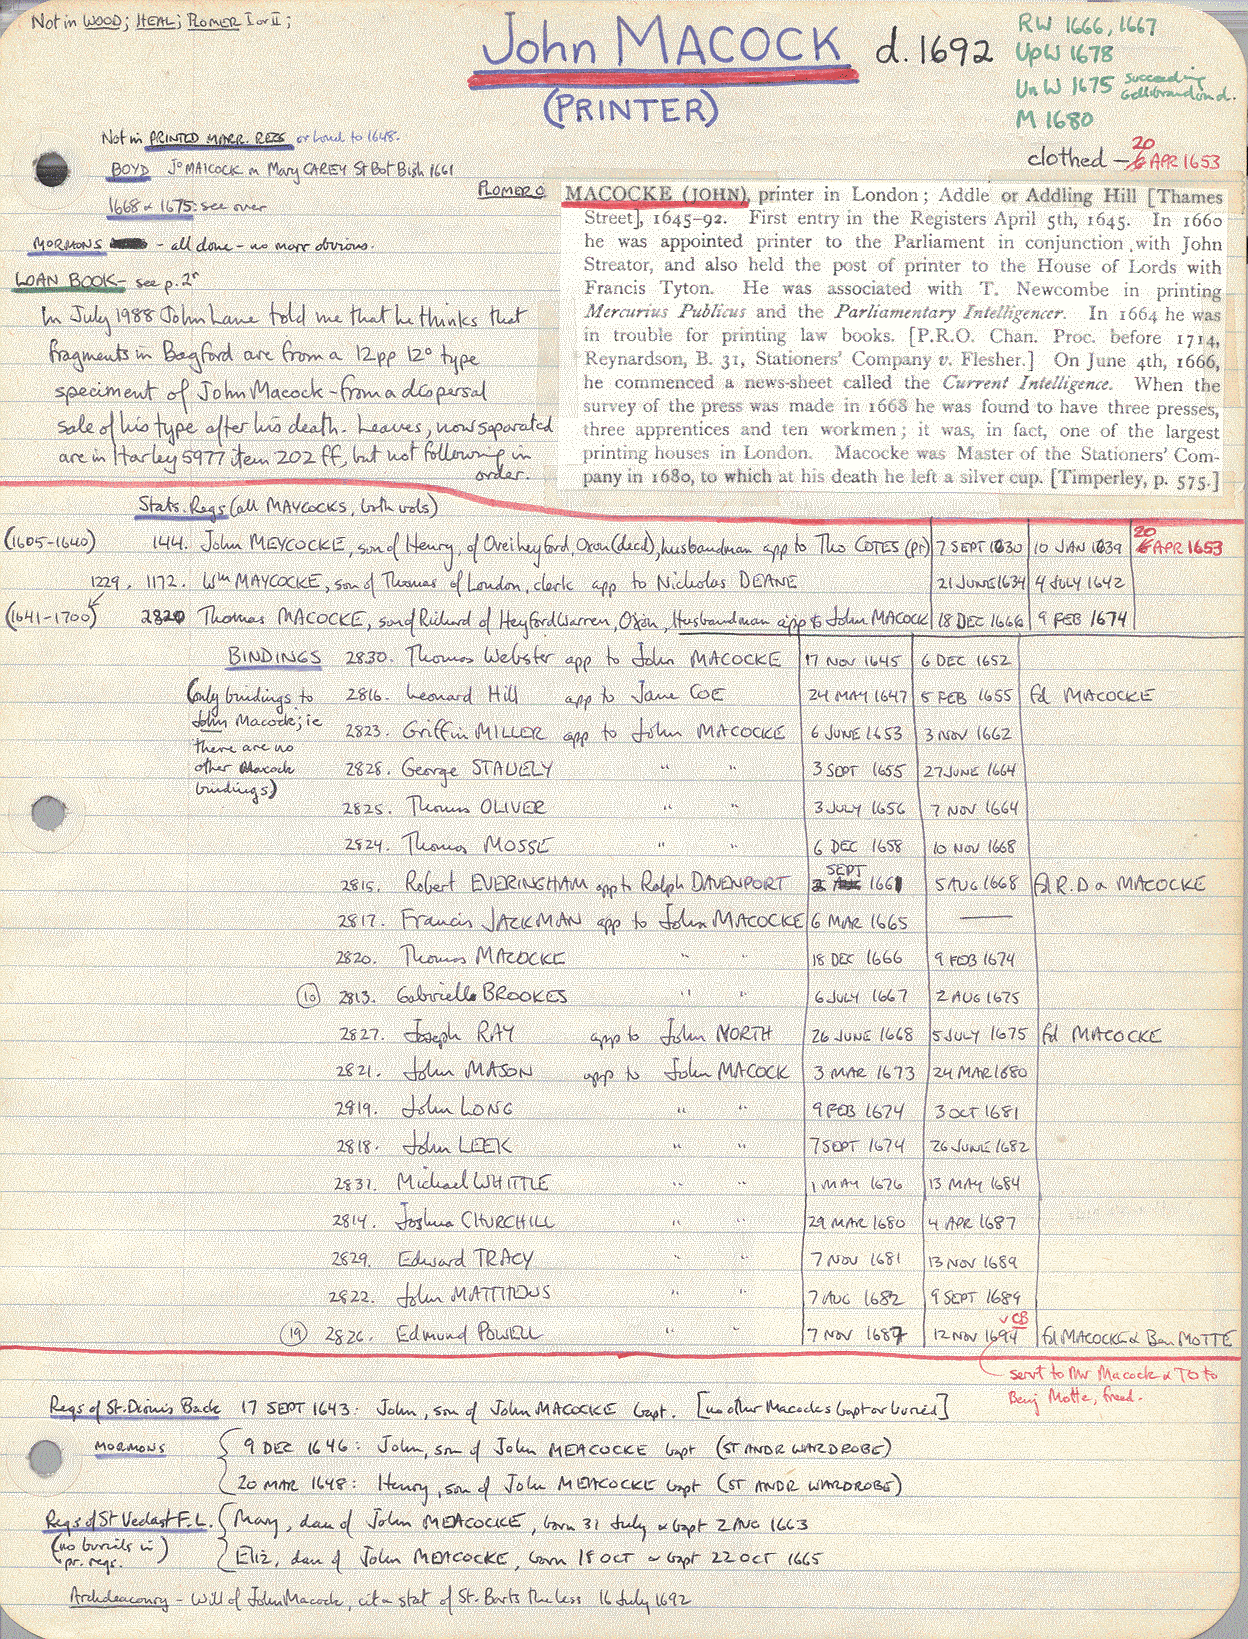 Not in WOOD; HEAL; PLOMER I or II;
John MACOCK d. 1692
(PRINTER)
RW 1666, 1667
UpW 1678
UnW 1675 succeeding Gellibrand on d.
M 1680
clothed – 20 APR 1653
Not in PRINTED MARR. REGS or Lond to 1648.
BOYD Jo MAICOCK m Mary CAREY St Bot Bish 1661
1668 & 1675: see over
MORMONS – all done – no marr obvious.
LOAN BOOK – see p. 2r
In July 1988 John Lane told me that he thinks that
fragments in Bagford are from a 12pp 12o type
speciment of John Macock – from a dispersal
sale of his type after his death. Leaves, now separated
are in Harley 5977 item 202 ff, but not following in
order.
PLOMER
MACOCKE (JOHN), printer in London; Addle or Addling Hill [Thames
Street], 1645–92. First entry in the Registers April 5th, 1645. In 1660
he was appointed printer to the Parliament in conjunction with John
Streator, and also held the post of printer to the House of Lords with
Francis Tyton. He was associated with T. Newcombe in printing
Mercurius Publicus and the Parliamentary Intelligencer. In 1664 he was
in trouble for printing law books. [P.R.O. Chan. Proc. before 1714,
Reynardson, B. 31, Stationers' Company v. Flesher.] On June 4th, 1666,
he commenced a news-sheet called the Current Intelligence. When the
survey of the press was made in 1668 he was found to have three presses,
three apprentices and ten workmen; it was, in fact, one of the largest
printing houses in London. Macocke was Master of the Stationers' Com-
pany in 1680, to which at his death he left a silver cup. [Timperley, p. 575.]
Stats. Regs (all MAYCOCKS, both vols)
(1605–1640) 144. John MEYCOCKE, son of Henry, of Oveiheyford, Oxon (decd), husbandman app to Tho COTES (pr) 7 SEPT 1630 10 JAN 1639 20 APR 1653
1229. 1172. Wm MAYCOCKE, son of Thomas of London, clerk app to Nicholas DEANE 21 JUNE 1634 4 JULY 1642
(1641–1700) 2820 Thomas MACOCKE, son of Richard of Heyford Warren, Oxon, Husbandman app to John MACOCK 18 DEC 1666 9 FEB 1674
BINDINGS 2830. Thomas Webster app to John MACOCKE 17 NOV 1645 6 DEC 1652
(only bindings to
John Macock; ie
there are no
other Macock
bindings)
2816. Leonard Hill app to Jane COE 24 MAY 1647 5 FEB 1655 fd MACOCKE
2823. Griffin MILLER app to John MACOCKE 6 JUNE 1653 3 NOV 1662
2828. George STAVELY " " 3 SEPT 1655 27 JUNE 1664
2825. Thomas OLIVER " " 3 JULY 1656 7 NOV 1664
2824. Thomas MOSSE " " 6 DEC 1658 10 NOV 1668
2815. Robert EVERINGHAM app to Ralph DAVENPORT 2 SEPT 1661 5 AUG 1668 fd R.D & MACOCKE
2817. Francis JACKMAN app to John MACOCKE 6 MAR 1665 ———
2820. Thomas MACOCKE " " 18 DEC 1666 9 FEB 1674
(10) 2813. Gabrielle BROOKES " " 6 JULY 1667 2 AUG 1675
2827. Joseph RAY app to John NORTH 26 JUNE 1668 5 JULY 1675 fd MACOCKE
2821. John MASON app to John MACOCK 3 MAR 1673 24 MAR 1680
2819. John LONG " " 9 FEB 1674 3 OCT 1681
2818. John LEEK " " 7 SEPT 1674 26 JUNE 1682
2831. Michael WHITTLE " " 1 MAY 1676 13 MAY 1684
2814. Joshua CHURCHILL " " 29 MAR 1680 4 APR 1687
2829. Edward TRACY " " 7 NOV 1681 13 NOV 1689
2822. John MATTHEWS " " 7 AUG 1682 9 SEPT 1689
✓CB
(19) 2826. Edmund POWELL " " 7 NOV 1687 12 NOV 1694 fd MACOCKE & Ben MOTTE
servt to Mr Macock & TO to
Benj Motte, freed.
Regs of St. Dionis Back 17 SEPT 1643: John, son of John MACOCKE bapt. [no other Macocks bapt or buried]
MORMONS 9 DEC 1646: John, son of John MEACOCKE bapt (ST ANDR WARDROBE)
20 MAR 1648: Henry, son of John MEACOCKE bapt (ST ANDR WARDROBE)
Regs of St Vedast F.L. Mary, dau of John MEACOCKE, born 31 July & bapt 2 AUG 1663
(no burials in pr. regs.)
Eliz, dau of John MEACOCKE, born 18 OCT & bapt 22 OCT 1665
Archdeaconry – Will of John Macock, cit & stat of St. Barts the less 16 July 1692